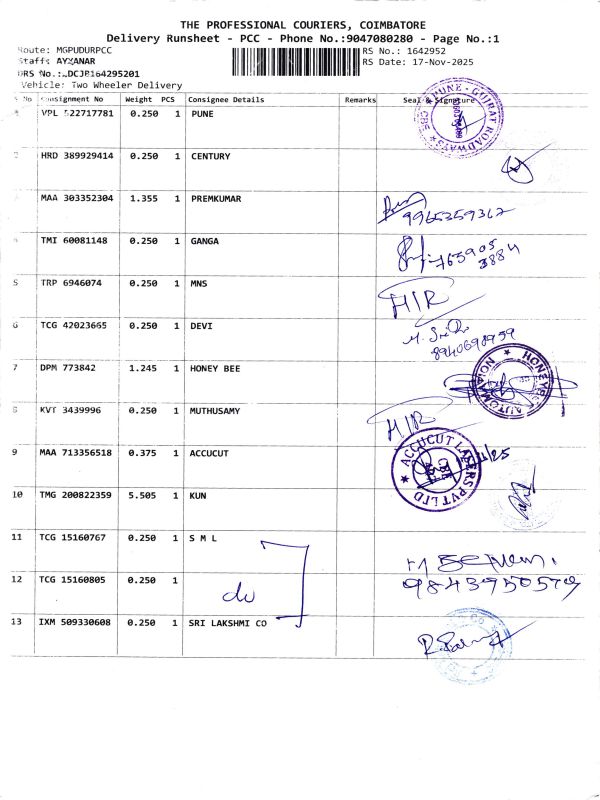 THE PROFESSIONAL COURIERS, COIMBATORE
Delivery Runsheet - PCC - Phone No.:9047080280 - Page No.:1
Route: MGPUDURPCC RS No.: 1642952
Staff: AYYANAR RS Date: 17-Nov-2025
DRS No.: DCJB164295201
Vehicle: Two Wheeler Delivery
S No Consignment No Weight PCS Consignee Details Remarks Seal & Signature
VPL 522717781 0.250 1 PUNE
PUNE - GUJRAT ROADWAYS CBE
HRD 389929414 0.250 1 CENTURY
MAA 303352304 1.355 1 PREMKUMAR
9965359367
TMI 60081148 0.250 1 GANGA
765905
3884
5 TRP 6946074 0.250 1 MNS H/R
6 TCG 42023665 0.250 1 DEVI
8940698959
7 DPM 773842 1.245 1 HONEY BEE
HONEYBEE AUTOMATION
8 KVT 3439996 0.250 1 MUTHUSAMY H/R
9 MAA 713356518 0.375 1 ACCUCUT
ACCUCUT LASERS PVT LTD
10 TMG 200822359 5.505 1 KUN
11 TCG 15160767 0.250 1 S M L
12 TCG 15160805 0.250 1 do 9843950579
13 IXM 509330608 0.250 1 SRI LAKSHMI CO